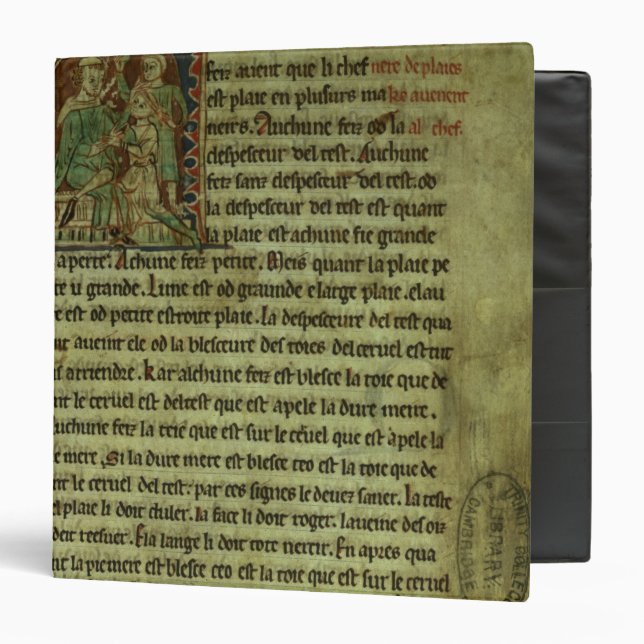 feiz avient que li chef nere de plaies
est plaie en plusurs ma
neirs. Auchune feiz od la al chef.
despesceur del test. Auchune
feiz sanz despesceur del test. od
la despesceur del test est quant
la plaie est achune fie grande
aperte. Achune feiz petite. Meis quant la plaie pe
te u grande. Lune est od graunde e large plaie. e lau
e est od petite estroite plaie. La despesceure del test qua
nt avient ele od la blesceure des toies del cervel est tut
a triendre. Kar alchune feiz est blesce la toie que de
nt le cervel est del test que est apele la dure mere.
uchune feiz la teie que est sur le cervel que est apele la
e mere. Si la dure mere est blesce ceo est la toie que de
nt le cervel del test. par ces signes le devez saver. La teste
el plaie li doit duler. la face li doit roger. la veine des oiz
deit reesuer. E la lange li doit tote nercir. En apres qua
nt la piemere est blesce ceo est la toie que est sur le cervel
TRINITY COLLEGE
LIBRARY.
CAMBRIDGE